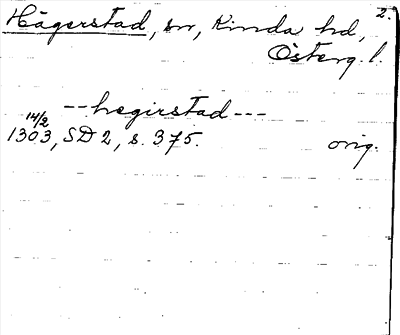 2.
Hägerstad, sn, Kinda hd,
Österg. l.
--- hegirstad ---
14/2
1303, SD 2, s. 375. orig.